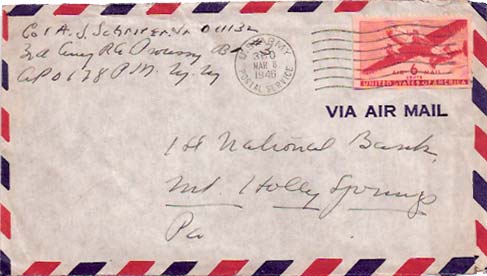 Col A. J. Schriver Jr 01132
3d Army R
APO 178 P.M. Ny. Ny
U.S. ARMY
MAR 8
1946
POSTAL SERVICE
6
AIR MAIL
CENTS
UNITED STATES OF AMERICA
VIA AIR MAIL
1st National Bank,
Mt Holly Springs
Pa